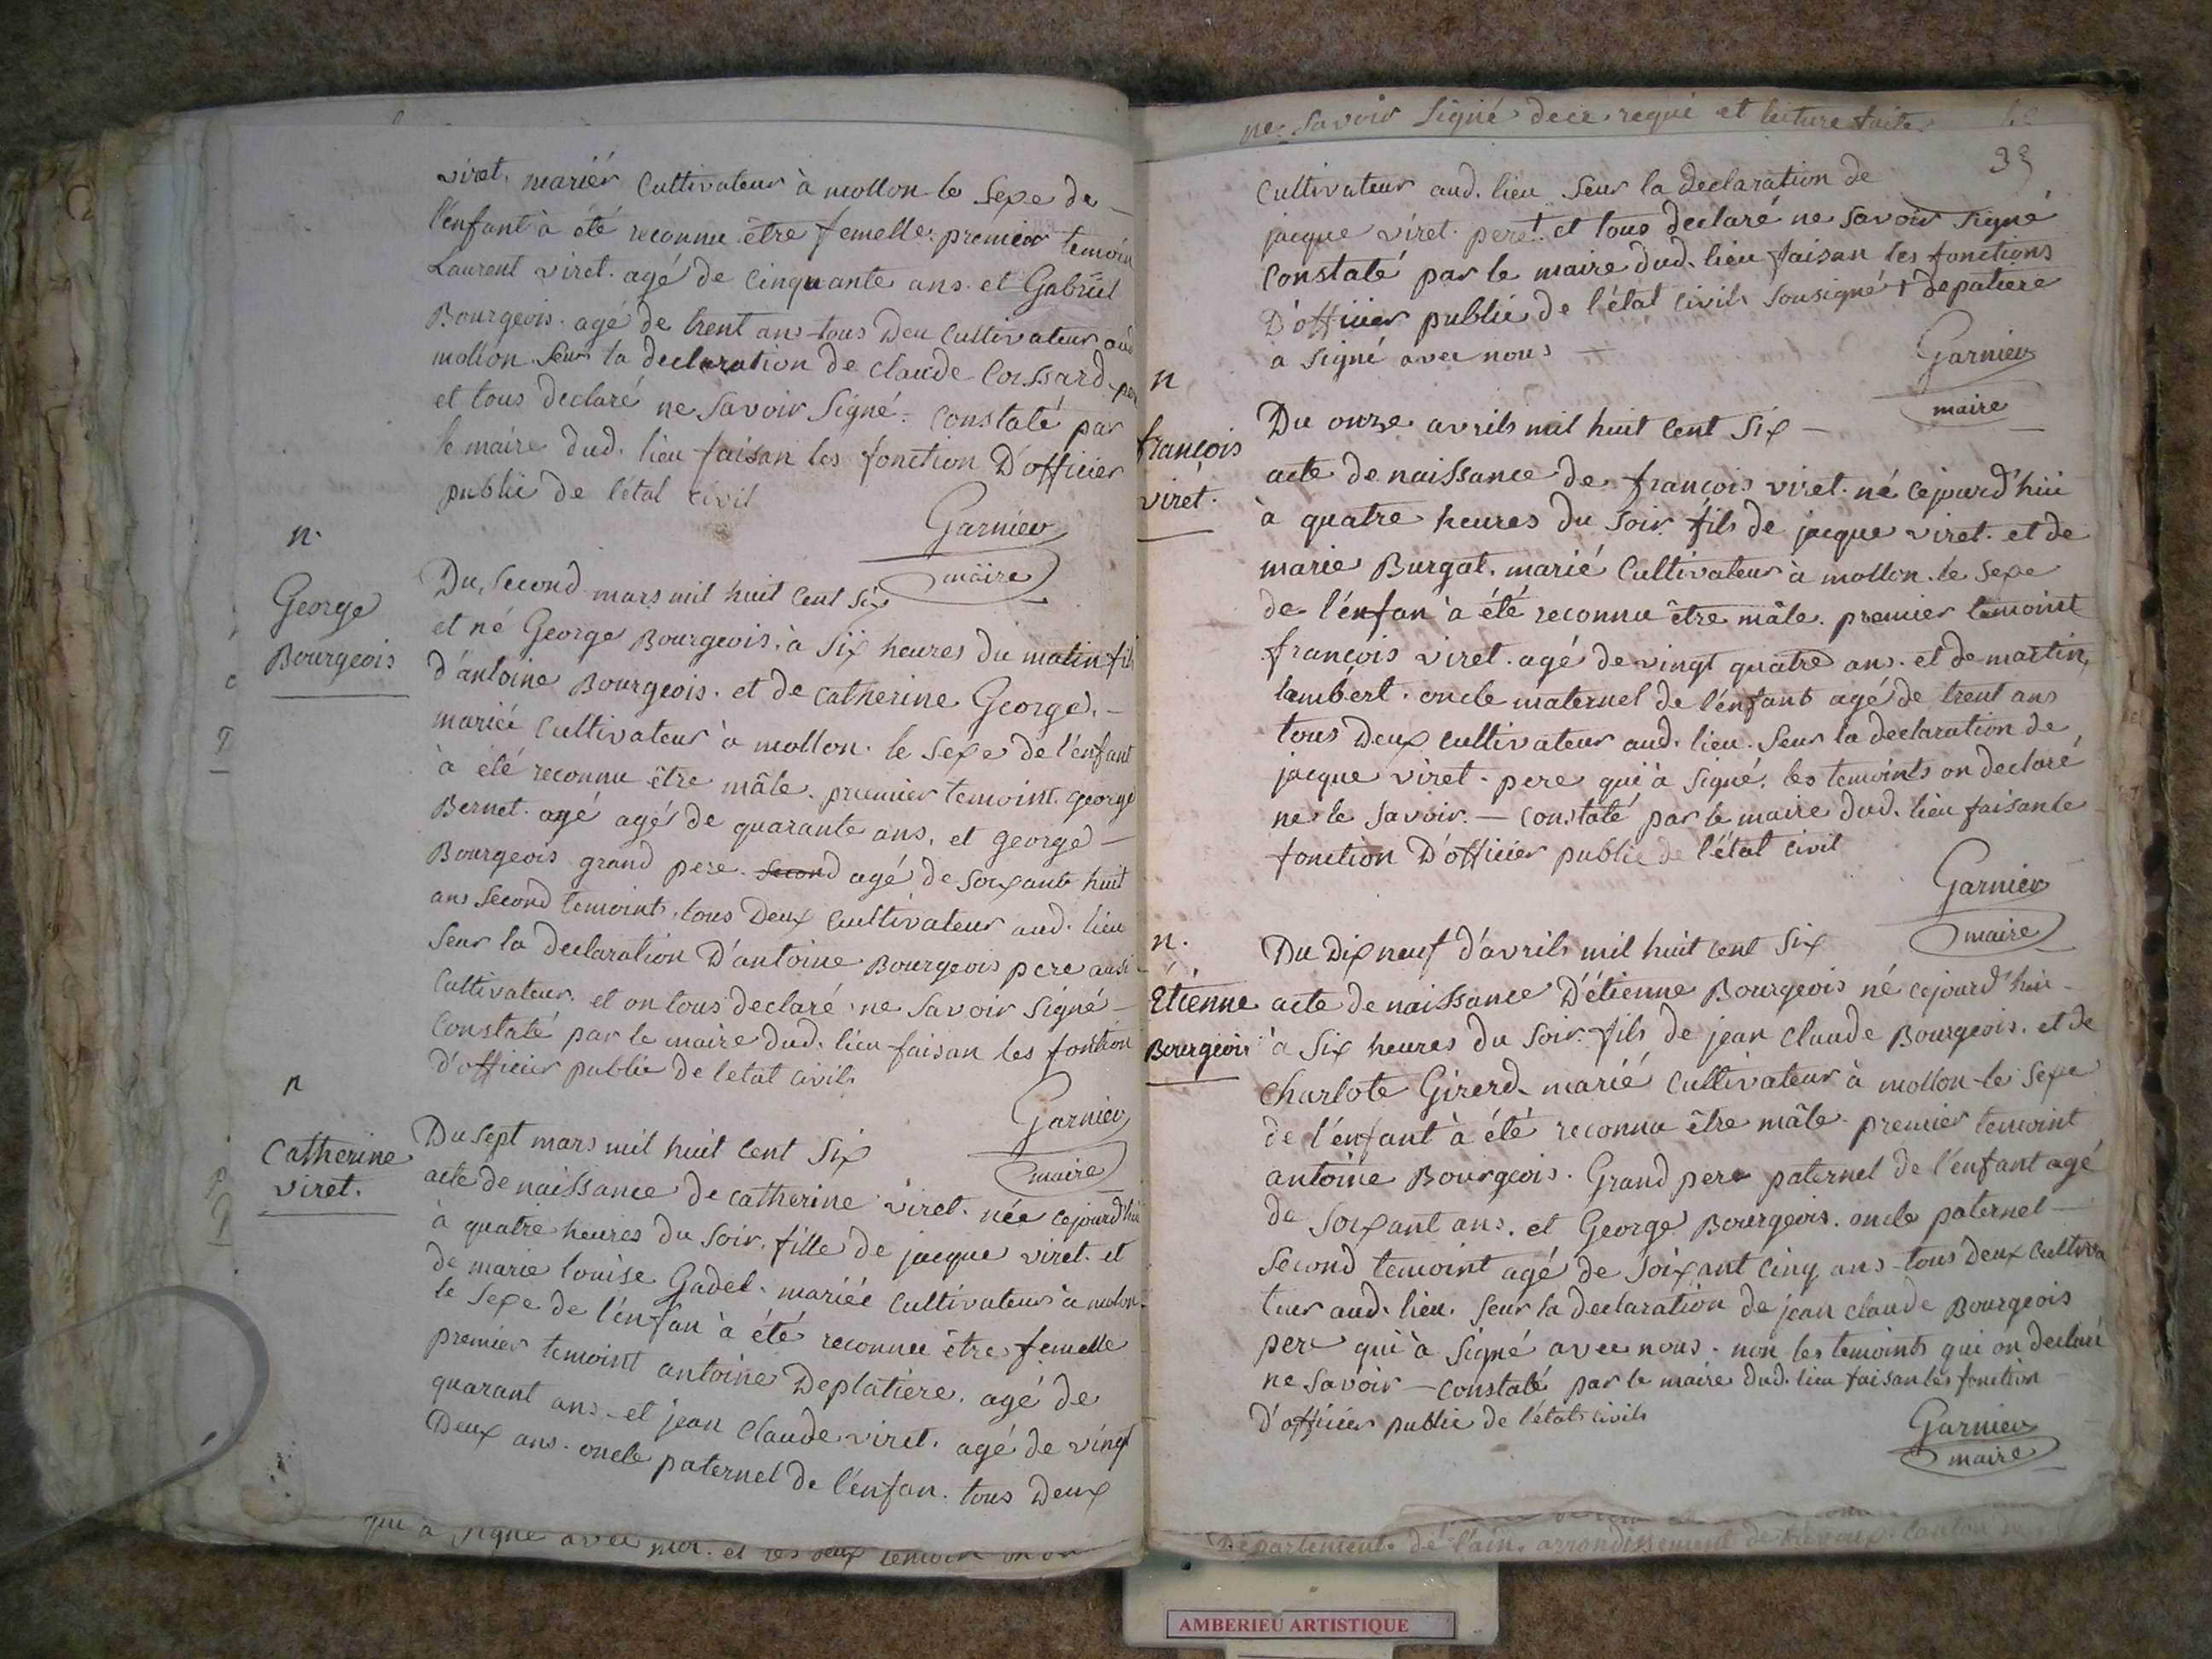 viret. mariér Cultivateur à mollon le Sexe de
l'enfant à été reconnu être femelle premier temoin
Laurent viret. agé de Cinquante ans et Gabriel
Bourgeois. agé de trent ans tous Deu Cultivateur aud
mollon Seur la declaration de Claude Coissard per
et tous declaré ne Savoir Signé. Constaté par
le maire dud. lieu faisan les fonction D'officier
publie de létat civil
Garnier
maire
n.
George
Bourgeois
Du, Second mars mil huit Cent Six
et né George Bourgeois. à Six heures du matin fils
d'antoine Bourgeois. et de Catherine George. —
mariéé Cultivateur à mollon. le Sexe de l'énfant
à été reconnu être mâle. premier temoint. george
Bernet. agé agé de quarante ans, et george —
Bourgeois grand pere. Second agé de Soixante huit
ans Second temoint, tous Deux Cultivateur aud. lieu
Seur la declaration D'antoine Bourgeois pere ausi
Cultivateur, et on tous declaré ne Savoir Signé —
Constaté par le maire dud. lieu faisan les fontion
D'officier publie de letat civil.
Garnier
maire
n
Catherine
viret.
Du Sept mars mil huit Cent Six
acte de naissance de catherine viret. née cejourd'hui
à quatre heures du Soir, fille de jacque viret. et
de marie louise Gadel. mariéé Cultivateur à molon.
le Sexe de l'énfan à été reconnu être femelle
premier temoint antoine Deplatiere. agé de
quarant ans et jean Claude viret. agé de vingt
Deux ans. oncle paternel de l'énfan. tous Deux
qui a signé avec moi. et les deux temoin on
ne Savoir Signé dece requi et lecture faite
33
Cultivateur aud. lieu Seur la declaration de
jacque viret. pere †. et tous declaré ne Savoir Signé
Constaté par le maire dud. lieu faisan les fonctions
D'officier publie de l'état Civil Sousigné † depatiere
a Signé avec nous —
Garnier
maire
n
françois
viret.
Du onze avrils mil huit Cent Six —
acte de naissance de françois viret. né Cejourd'hui
à quatre heures du Soir fils de jacque viret. et de
marie Burgat. marié Cultivateur à mollon. le Sexe
de l'énfan à été reconnu être mâle. premier temoint
françois viret. agé de vingt quatre ans. et de martin,
lambért. oncle maternel de l'énfant agé de trent ans
tous Deux Cultivateur aud. lieu. Seur la declaration de
jacque viret. pere qui à Signé. les temoints on declaré
ne le Savoir. — Constaté par le maire dud. lieu faisan le
fonction D'officier publie de l'état Civil
Garnier
maire
n.
Etienne
Bourgeois
Du Dix neuf d'avrils mil huit Cent Six
acte de naissance D'étienne Bourgeois né cejourd'hui
à Six heures du Soir. fils de jean Claude Bourgeois. et de
Charlote Girerd marié Cultivateur à mollon le Sexe
de l'énfant à été reconnu être mâle premier temoint
antoine Bourgeois. Grand pere paternel de l'énfant agé
de Soixant ans. et George Bourgeois. oncle paternel —
Second temoint agé de Soixant Cinq ans tous Deux Cultiva
teur aud. lieu. Seur la declaration de jean Claude Bourgeois
pere qui à Signé avec nous. non les temoints qui on declaré
ne Savoir — Constaté par le maire dud. lieu faisan les fonction
D'officier publie de l'état civil
Garnier
maire
Departement de l'ain. arrondissement de Trevoux. Canton
AMBERIEU ARTISTIQUE